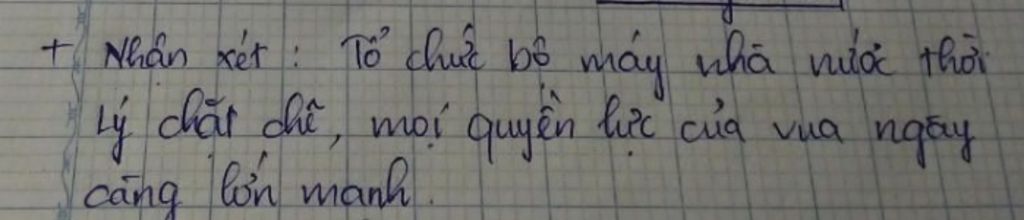 + Nhân xét : Tổ chức bộ máy nhà nước thời
Lý chặt chẽ, mọi quyền lực của vua ngày
càng lớn mạnh.